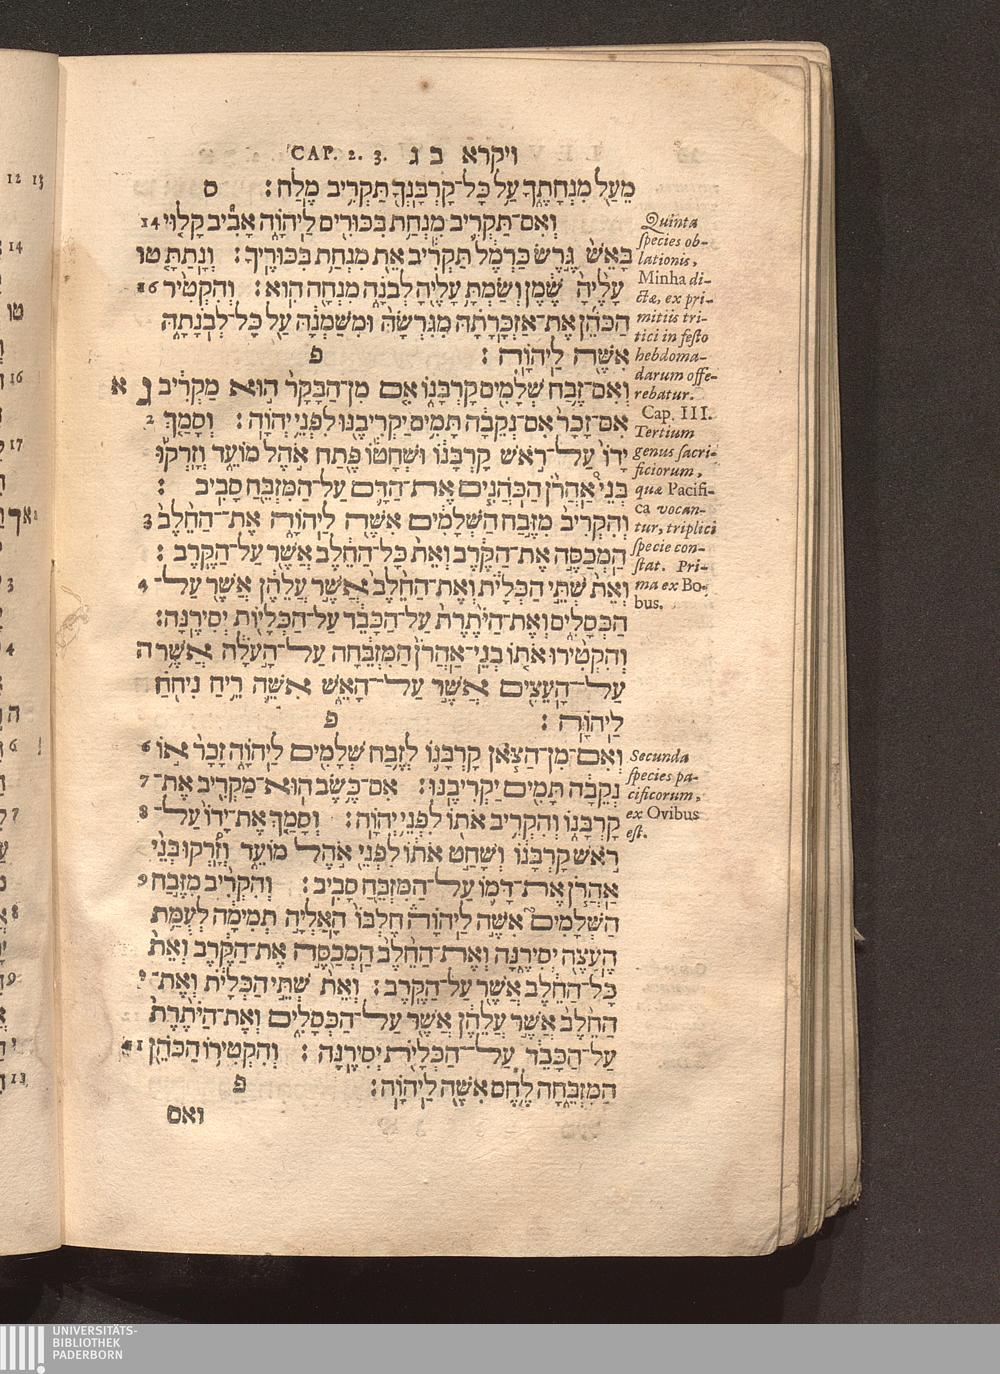 CAP. 2. 3. ויקרא ב ג
מֵעַל מִנְחָתֶךָ עַל כָּל־קָרְבָּנְךָ תַּקְרִיב מֶלַח׃ ס
וְאִם־תַּקְרִיב מִנְחַת בִּכּוּרִים לַיהֹוָה אָבִיב קָלוּי 14
בָּאֵשׁ גֶּרֶשׂ כַּרְמֶל תַּקְרִיב אֵת מִנְחַת בִּכּוּרֶיךָ׃ וְנָתַתָּ טו
עָלֶיהָ שֶׁמֶן וְשַׂמְתָּ עָלֶיהָ לְבֹנָה מִנְחָה הִוא׃ וְהִקְטִיר 16
הַכֹּהֵן אֶת־אַזְכָּרָתָהּ מִגִּרְשָׂהּ וּמִשַּׁמְנָהּ עַל כָּל־לְבֹנָתָהּ
אִשֶּׁה לַיהֹוָה׃ פ
וְאִם־זֶבַח שְׁלָמִים קָרְבָּנוֹ אִם מִן־הַבָּקָר הוּא מַקְרִיב ג א
אִם־זָכָר אִם־נְקֵבָה תָּמִים יַקְרִיבֶנּוּ לִפְנֵי יְהֹוָה׃ וְסָמַךְ 2
יָדוֹ עַל־רֹאשׁ קָרְבָּנוֹ וּשְׁחָטוֹ פֶּתַח אֹהֶל מוֹעֵד וְזָרְקוּ
בְּנֵי אַהֲרֹן הַכֹּהֲנִים אֶת־הַדָּם עַל־הַמִּזְבֵּחַ סָבִיב׃
וְהִקְרִיב מִזֶּבַח הַשְּׁלָמִים אִשֶּׁה לַיהֹוָה אֶת־הַחֵלֶב 3
הַמְכַסֶּה אֶת־הַקֶּרֶב וְאֵת כָּל־הַחֵלֶב אֲשֶׁר עַל־הַקֶּרֶב׃
וְאֵת שְׁתֵּי הַכְּלָיֹת וְאֶת־הַחֵלֶב אֲשֶׁר עֲלֵהֶן אֲשֶׁר עַל־ 4
הַכְּסָלִים וְאֶת־הַיֹּתֶרֶת עַל־הַכָּבֵד עַל־הַכְּלָיוֹת יְסִירֶנָּה׃
וְהִקְטִירוּ אֹתוֹ בְנֵי־אַהֲרֹן הַמִּזְבֵּחָה עַל־הָעֹלָה אֲשֶׁר ה
עַל־הָעֵצִים אֲשֶׁר עַל־הָאֵשׁ אִשֵּׁה רֵיחַ נִיחֹחַ
לַיהֹוָה׃ פ
וְאִם־מִן־הַצֹּאן קָרְבָּנוֹ לְזֶבַח שְׁלָמִים לַיהֹוָה זָכָר אוֹ 6
נְקֵבָה תָּמִים יַקְרִיבֶנּוּ׃ אִם־כֶּשֶׂב הוּא־מַקְרִיב אֶת־ 7
קָרְבָּנוֹ וְהִקְרִיב אֹתוֹ לִפְנֵי יְהֹוָה׃ וְסָמַךְ אֶת־יָדוֹ עַל־ 8
רֹאשׁ קָרְבָּנוֹ וְשָׁחַט אֹתוֹ לִפְנֵי אֹהֶל מוֹעֵד וְזָרְקוּ בְּנֵי
אַהֲרֹן אֶת־דָּמוֹ עַל־הַמִּזְבֵּחַ סָבִיב׃ וְהִקְרִיב מִזֶּבַח 9
הַשְּׁלָמִים אִשֶּׁה לַיהֹוָה חֶלְבּוֹ הָאַלְיָה תְמִימָה לְעֻמַּת
הֶעָצֶה יְסִירֶנָּה וְאֶת־הַחֵלֶב הַמְכַסֶּה אֶת־הַקֶּרֶב וְאֵת
כָּל־הַחֵלֶב אֲשֶׁר עַל־הַקֶּרֶב׃ וְאֵת שְׁתֵּי הַכְּלָיֹת וְאֶת־ י
הַחֵלֶב אֲשֶׁר עֲלֵהֶן אֲשֶׁר עַל־הַכְּסָלִים וְאֶת־הַיֹּתֶרֶת
עַל־הַכָּבֵד עַל־הַכְּלָיֹת יְסִירֶנָּה׃ וְהִקְטִירוֹ הַכֹּהֵן 11
הַמִּזְבֵּחָה לֶחֶם אִשֶּׁה לַיהֹוָה׃ פ
ואם
Quinta
species ob-
lationis,
Minha di-
ctæ, ex pri-
mitiis tri-
tici in festo
hebdoma-
darum offe-
rebatur.
Cap. III.
Tertium
genus sacri-
ficiorum,
quæ Pacifi-
ca vocan-
tur, triplici
specie con-
stat. Pri-
ma ex Bo-
bus.
Secunda
species pa-
cificorum,
ex Ovibus
est.
12 13
14
טו
16
17
אך
3
4
ה
6
7
8
9
י
11
UNIVERSITÄTS-
BIBLIOTHEK
PADERBORN